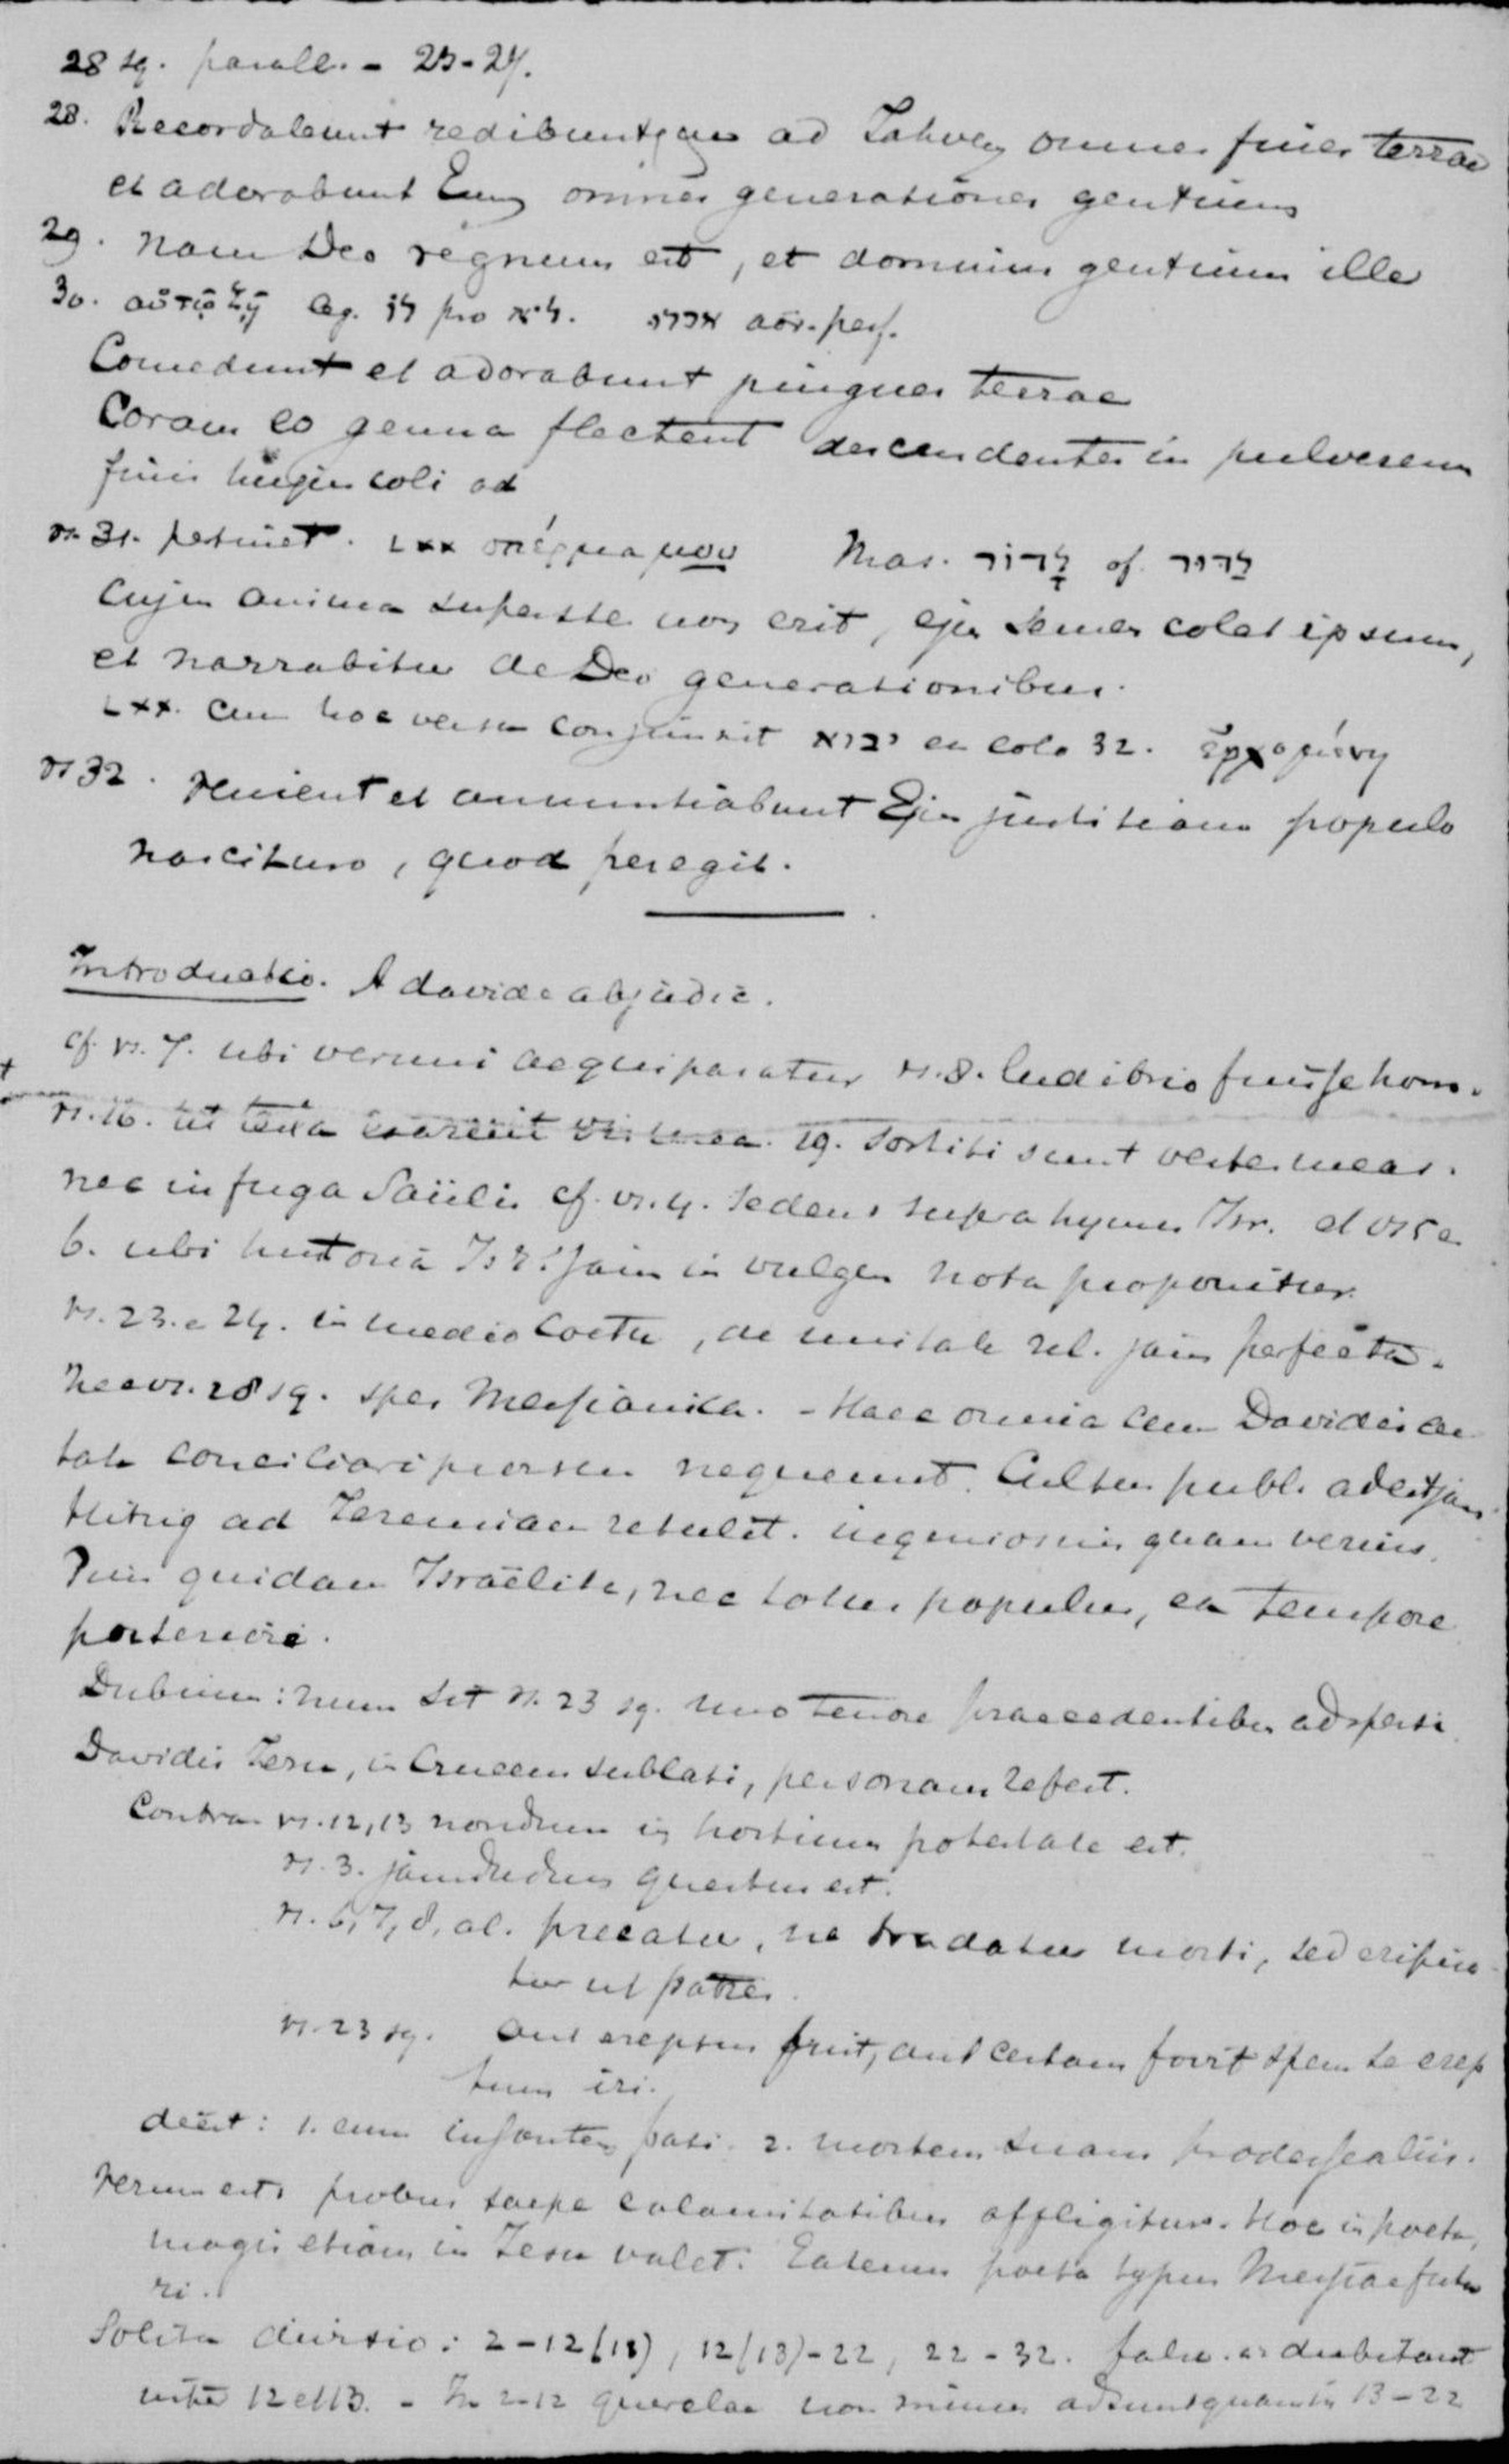 28 sq. parall. - 23-27.
28. Recordabunt redibuntque ad Jahven omnes fines terrae
et adorabunt Eum omnes generationes gentium
29. nam Deo regnum est, et dominus gentium ille
30. αὐτῷ ζῇ leg. לו pro לא. אכלו aor. perf.
Comedunt et adorabunt pingues terrae
Coram eo genua flectent descendentes in pulverem
finis hujus coli ad
vs. 31. pertinet. LXX σπέρμα μου Mas. לַדּוֹר of. לדור
Cujus anima superstes non erit, ejus semen colet ipsum,
et narrabitur de Deo generationibus.
LXX. cum hoc versu conjunxit יבוא ex colo 32. ἐρχομένη
vs 32. venient et annuntiabunt Ejus justitiam populo
nascituro, quod peregit.
Introductio. A davide abjudic.
cf. vs. 7. ubi vermi aequiparatur vs. 8. ludibrio fuisse hom.
vs. 16. ut testa exaruit vis mea. 19. sortiti sunt vestes meas.
nec in fuga Saülis cf. vs. 4. sedens supra hymnos Isr. et vs 5 e
6. ubi historia Isr. jam in vulgus nota proponitur.
vs. 23. e 24. in medio coetu, de unitate rel. jam perfecta.
nec vs. 28 sq. spes Messianica. - Haec omnia cum Davidis ae
tate conciliari prorsus nequeunt. Cultus publ. adest jam.
Hitzig ad Jeremiam retulit. ingeniosius quam verius.
Pius quidam Israëlita, nec totus populus, ex tempore
posteriore.
Dubium: num sit vs. 23 sq. uno tenore praecedentibus adspersi
Davidis Jesu, in crucem sublati, personam refert.
Contra vs. 12, 13 nondum in hostium potestate est.
vs. 3. jamdudum questus est.
vs. 6, 7, 8, al. precatur, ne tradatur morti, sed eripia
tur ut patres.
vs. 23 sq. aut ereptus fuit, aut certam fovit spem se erep
tum iri.
deest: 1. eum insontem pati. 2. mortem suam prodesse aliis.
Verum est, probus saepe calamitatibus affligitur. Hoc in poeta,
magis etiam in Jesu valet. Eatenus poeta typus Messiae futu
ri.
Solita divisio: 2-12(13), 12(13)-22, 22-32. dubitant
inter 12 et 13. - In 2-12 querelae non minus adsunt quam in 13-22